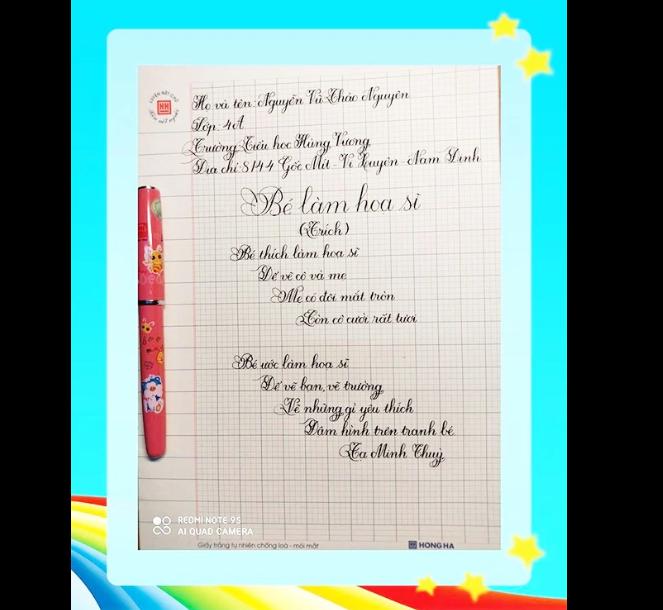 Họ và tên: Nguyễn Vũ Thảo Nguyên
Lớp: 4A
Trường Tiểu học Hùng Vương
Địa chỉ: 8/44 Gốc Mít - Vị Xuyên - Nam Định
Bé làm họa sĩ
(Trích)
Bé thích làm họa sĩ
Để vẽ cô và mẹ
Mẹ có đôi mắt tròn
Còn cô cười rất tươi
Bé ước làm họa sĩ
Để vẽ bạn, vẽ trường
Vẽ những gì yêu thích
Đậm hình trên tranh bé
Tạ Minh Thuỷ
REDMI NOTE 9S
AI QUAD CAMERA
Giấy trắng tự nhiên chống loá - mỏi mắt
HH HONG HA